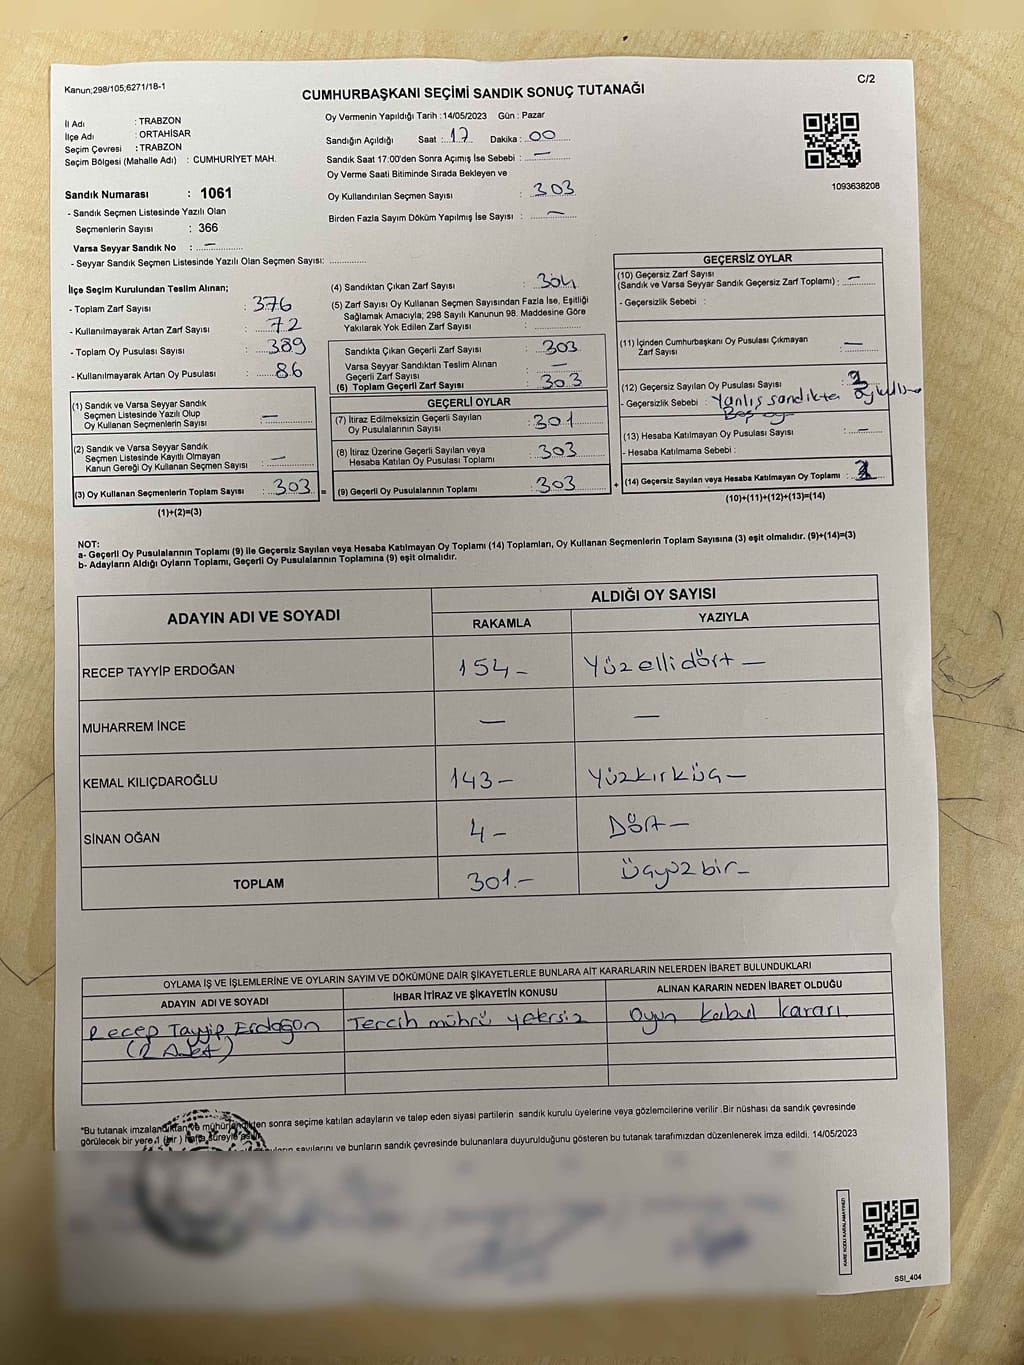 Kanun;298/105;6271/18-1
C/2
CUMHURBAŞKANI SEÇİMİ SANDIK SONUÇ TUTANAĞI
İl Adı : TRABZON
İlçe Adı : ORTAHİSAR
Seçim Çevresi : TRABZON
Seçim Bölgesi (Mahalle Adı) : CUMHURİYET MAH.
Sandık Numarası : 1061
- Sandık Seçmen Listesinde Yazılı Olan
Seçmenlerin Sayısı : 366
Varsa Seyyar Sandık No : —
- Seyyar Sandık Seçmen Listesinde Yazılı Olan Seçmen Sayısı: ..............
Oy Vermenin Yapıldığı Tarih : 14/05/2023 Gün : Pazar
Sandığın Açıldığı Saat : 17 Dakika : 00
Sandık Saat 17:00'den Sonra Açımış İse Sebebi : —
Oy Verme Saati Bitiminde Sırada Bekleyen ve
Oy Kullandırılan Seçmen Sayısı : 303
Birden Fazla Sayım Döküm Yapılmış İse Sayısı : —
1093638208
İlçe Seçim Kurulundan Teslim Alınan;
- Toplam Zarf Sayısı : 376
- Kullanılmayarak Artan Zarf Sayısı : 72
- Toplam Oy Pusulası Sayısı : 389
- Kullanılmayarak Artan Oy Pusulası : 86
(1) Sandık ve Varsa Seyyar Sandık
Seçmen Listesinde Yazılı Olup
Oy Kullanan Seçmenlerin Sayısı : —
(2) Sandık ve Varsa Seyyar Sandık
Seçmen Listesinde Kayıtlı Olmayan
Kanun Gereği Oy Kullanan Seçmen Sayısı : —
(3) Oy Kullanan Seçmenlerin Toplam Sayısı : 303 =
(1)+(2)=(3)
(4) Sandıktan Çıkan Zarf Sayısı : 304
(5) Zarf Sayısı Oy Kullanan Seçmen Sayısından Fazla İse, Eşitliği
Sağlamak Amacıyla, 298 Sayılı Kanunun 98. Maddesine Göre
Yakılarak Yok Edilen Zarf Sayısı : ..............
Sandıkta Çıkan Geçerli Zarf Sayısı : 303
Varsa Seyyar Sandıktan Teslim Alınan
Geçerli Zarf Sayısı : —
(6) Toplam Geçerli Zarf Sayısı : 303
GEÇERLİ OYLAR
(7) İtiraz Edilmeksizin Geçerli Sayılan
Oy Pusulalarının Sayısı : 301
(8) İtiraz Üzerine Geçerli Sayılan veya
Hesaba Katılan Oy Pusulası Toplamı : 303
(9) Geçerli Oy Pusulalarının Toplamı : 303 +
GEÇERSİZ OYLAR
(10) Geçersiz Zarf Sayısı
(Sandık ve Varsa Seyyar Sandık Geçersiz Zarf Toplamı) : —
- Geçersizlik Sebebi :
(11) İçinden Cumhurbaşkanı Oy Pusulası Çıkmayan
Zarf Sayısı : —
(12) Geçersiz Sayılan Oy Pusulası Sayısı :
- Geçersizlik Sebebi : Yanlış sandıkta
Boş oy
(13) Hesaba Katılmayan Oy Pusulası Sayısı : —
- Hesaba Katılmama Sebebi :
(14) Geçersiz Sayılan veya Hesaba Katılmayan Oy Toplamı :
(10)+(11)+(12)+(13)=(14)
NOT:
a- Geçerli Oy Pusulalarının Toplamı (9) ile Geçersiz Sayılan veya Hesaba Katılmayan Oy Toplamı (14) Toplamları, Oy Kullanan Seçmenlerin Toplam Sayısına (3) eşit olmalıdır. (9)+(14)=(3)
b- Adayların Aldığı Oyların Toplamı, Geçerli Oy Pusulalarının Toplamına (9) eşit olmalıdır.
ADAYIN ADI VE SOYADI
ALDIĞI OY SAYISI
RAKAMLA YAZIYLA
RECEP TAYYİP ERDOĞAN 154- Yüzellidört —
MUHARREM İNCE — —
KEMAL KILIÇDAROĞLU 143- Yüzkırküç —
SİNAN OĞAN 4- Dört —
TOPLAM 301.- Üçyüzbir —
OYLAMA İŞ VE İŞLEMLERİNE VE OYLARIN SAYIM VE DÖKÜMÜNE DAİR ŞİKAYETLERLE BUNLARA AİT KARARLARIN NELERDEN İBARET BULUNDUKLARI
ADAYIN ADI VE SOYADI İHBAR İTİRAZ VE ŞİKAYETİN KONUSU ALINAN KARARIN NEDEN İBARET OLDUĞU
Recep Tayyip Erdoğan Tercih mührü yetersiz Oyun kabul kararı
(2 Adet)
"Bu tutanak imzalandıktan ve mühürlendikten sonra seçime katılan adayların ve talep eden siyasi partilerin sandık kurulu üyelerine veya gözlemcilerine verilir .Bir nüshası da sandık çevresinde
görülecek bir yere 1 (bir) hafta süreyle
sayılarını ve bunların sandık çevresinde bulunanlara duyurulduğunu gösteren bu tutanak tarafımızdan düzenlenerek imza edildi. 14/05/2023
KARE KODU KARALAMAYINIZ!
SSI_404